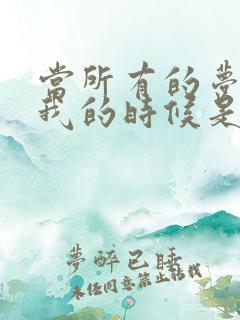 當所有的夢
我的時候是
夢醉已睡
未经同意禁止转载